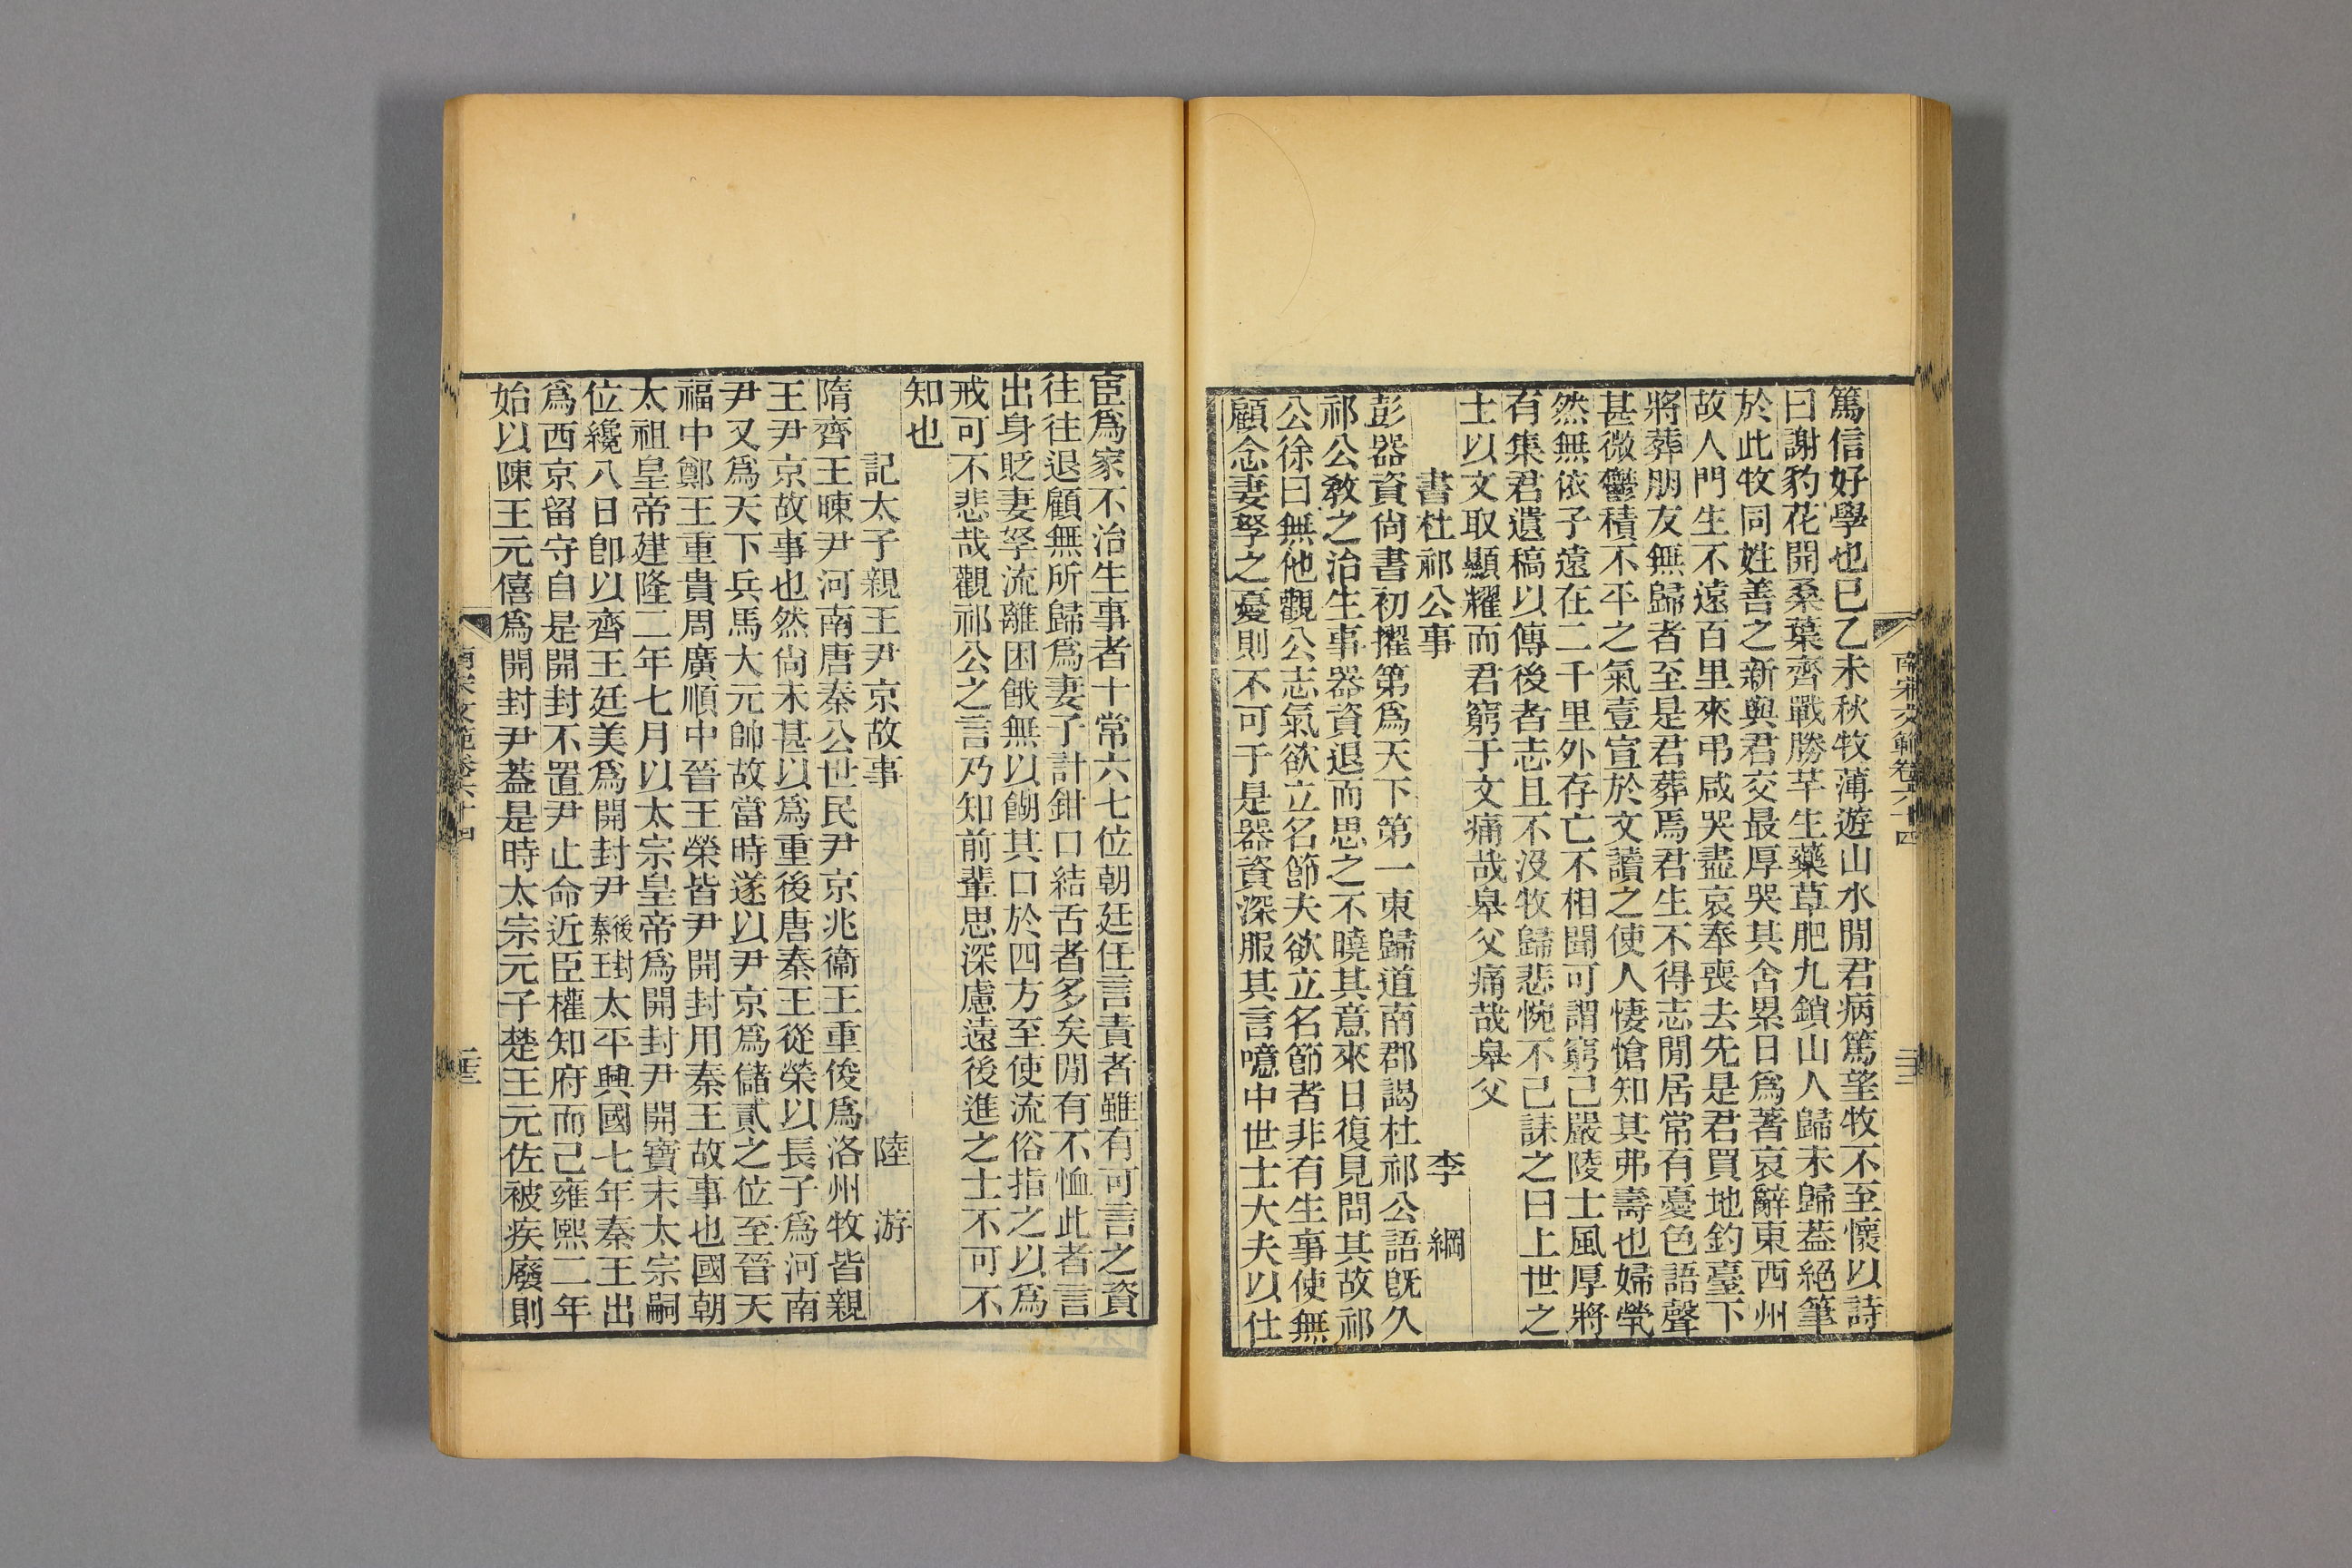 篤信好學也已乙未秋牧薄遊山水閒君病篤望牧不至懷以詩
曰謝豹花開桑葉齊戰勝芊生藥草肥九鎖山人歸未歸葢絕筆
於此牧同姓善之新與君交最厚哭其舍累日爲著哀辭東西州
故人門生不遠百里來弔咸哭盡哀奉喪去先是君買地釣臺下
將葬朋友無歸者至是君葬焉君生不得志閒居常有憂色語聲
甚微鬱積不平之氣壹宣於文讀之使人悽愴知其弗壽也婦煢
然無依子遠在二千里外存亡不相聞可謂窮已嚴陵士風厚將
有集君遺稿以傳後者志且不沒牧歸悲惋不已誄之曰上世之
士以文取顯耀而君窮于文痛哉皋父痛哉皋父
書杜祁公事 李綱
彭器資尙書初擢第爲天下第一東歸道南郡謁杜祁公語旣久
祁公敎之治生事器資退而思之不曉其意來日復見問其故祁
公徐曰無他觀公志氣欲立名節夫欲立名節者非有生事使無
顧念妻孥之憂則不可于是器資深服其言噫中世士大夫以仕
南宋文範卷六十四
宦爲家不治生事者十常六七位朝廷任言責者雖有可言之資
往往退顧無所歸爲妻子計鉗口結舌者多矣閒有不恤此者言
出身貶妻孥流離困餓無以餬其口於四方至使流俗指之以爲
戒可不悲哉觀祁公之言乃知前輩思深慮遠後進之士不可不
知也
記太子親王尹京故事 陸游
隋齊王暕尹河南唐秦公世民尹京兆衞王重俊爲洛州牧皆親
王尹京故事也然尙未甚以爲重後唐秦王從榮以長子爲河南
尹又爲天下兵馬大元帥故當時遂以尹京爲儲貳之位至晉天
福中鄭王重貴周廣順中晉王榮皆尹開封用秦王故事也國朝
太祖皇帝建隆二年七月以太宗皇帝爲開封尹開寶末太宗嗣
位纔八日卽以齊王廷美爲開封尹後封秦王太平興國七年秦王出
爲西京留守自是開封不置尹止命近臣權知府而已雍熙二年
始以陳王元僖爲開封尹葢是時太宗元子楚王元佐被疾廢則
南宋文範卷六十四